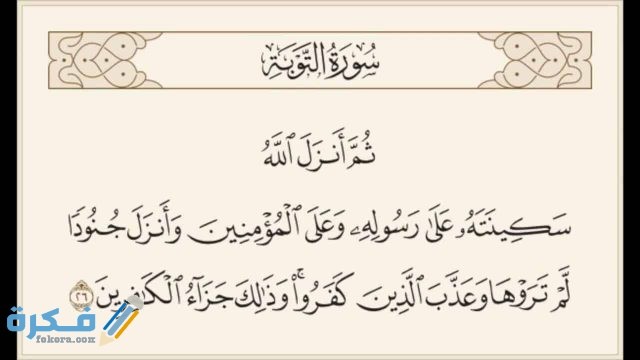 سُورَةُ التَّوْبَةِ
ثُمَّ أَنزَلَ ٱللَّهُ
سَكِينَتَهُۥ عَلَىٰ رَسُولِهِۦ وَعَلَى ٱلْمُؤْمِنِينَ وَأَنزَلَ جُنُودًا
لَّمْ تَرَوْهَا وَعَذَّبَ ٱلَّذِينَ كَفَرُوا۟ ۚ وَذَٰلِكَ جَزَآءُ ٱلْكَٰفِرِينَ ٢٦
فكرة
fekera.com